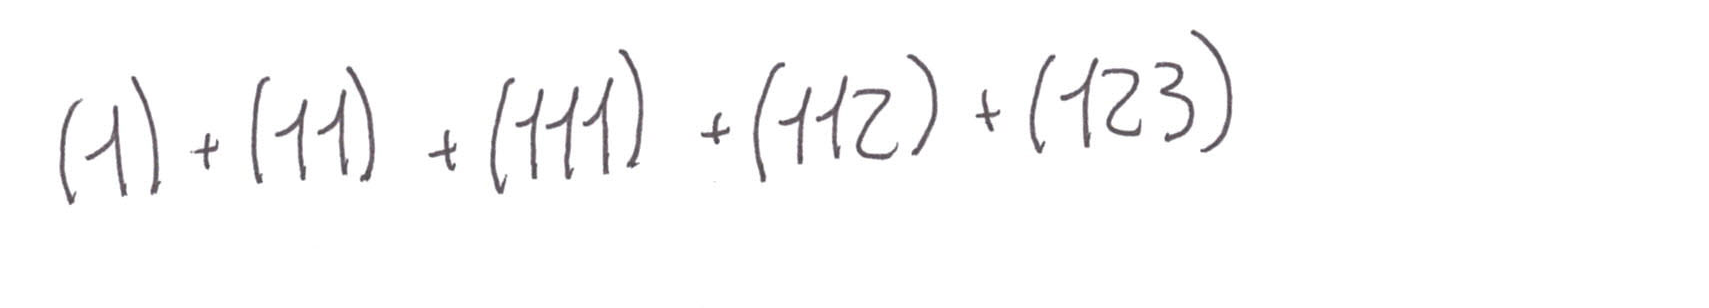 (1) + (11) + (111) + (112) + (123)